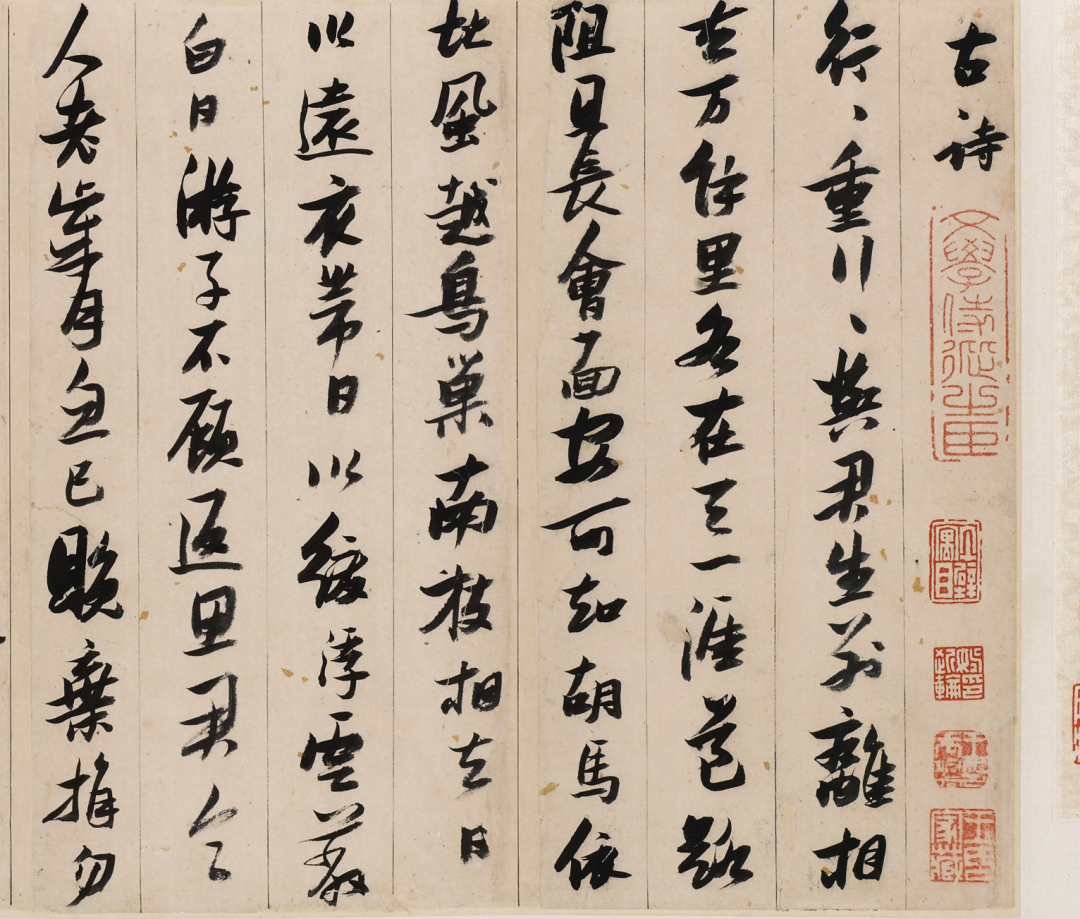 古詩
文學侍從之臣
行、重行、與君生別離相
去万餘里各在天一涯道路
阻且長會面安可知胡馬依
北風越鳥巢南枝相去日
以遠衣帶日以緩浮雲蔽
白日游子不顧返思君令
人老歲月忽已晚棄捐勿